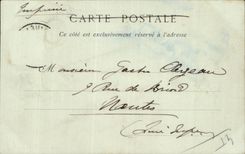 Imprimé
CARTE POSTALE
Ce côté est exclusivement réservé à l'adresse
Monsieur Gaston
Rue de Briord
Nantes